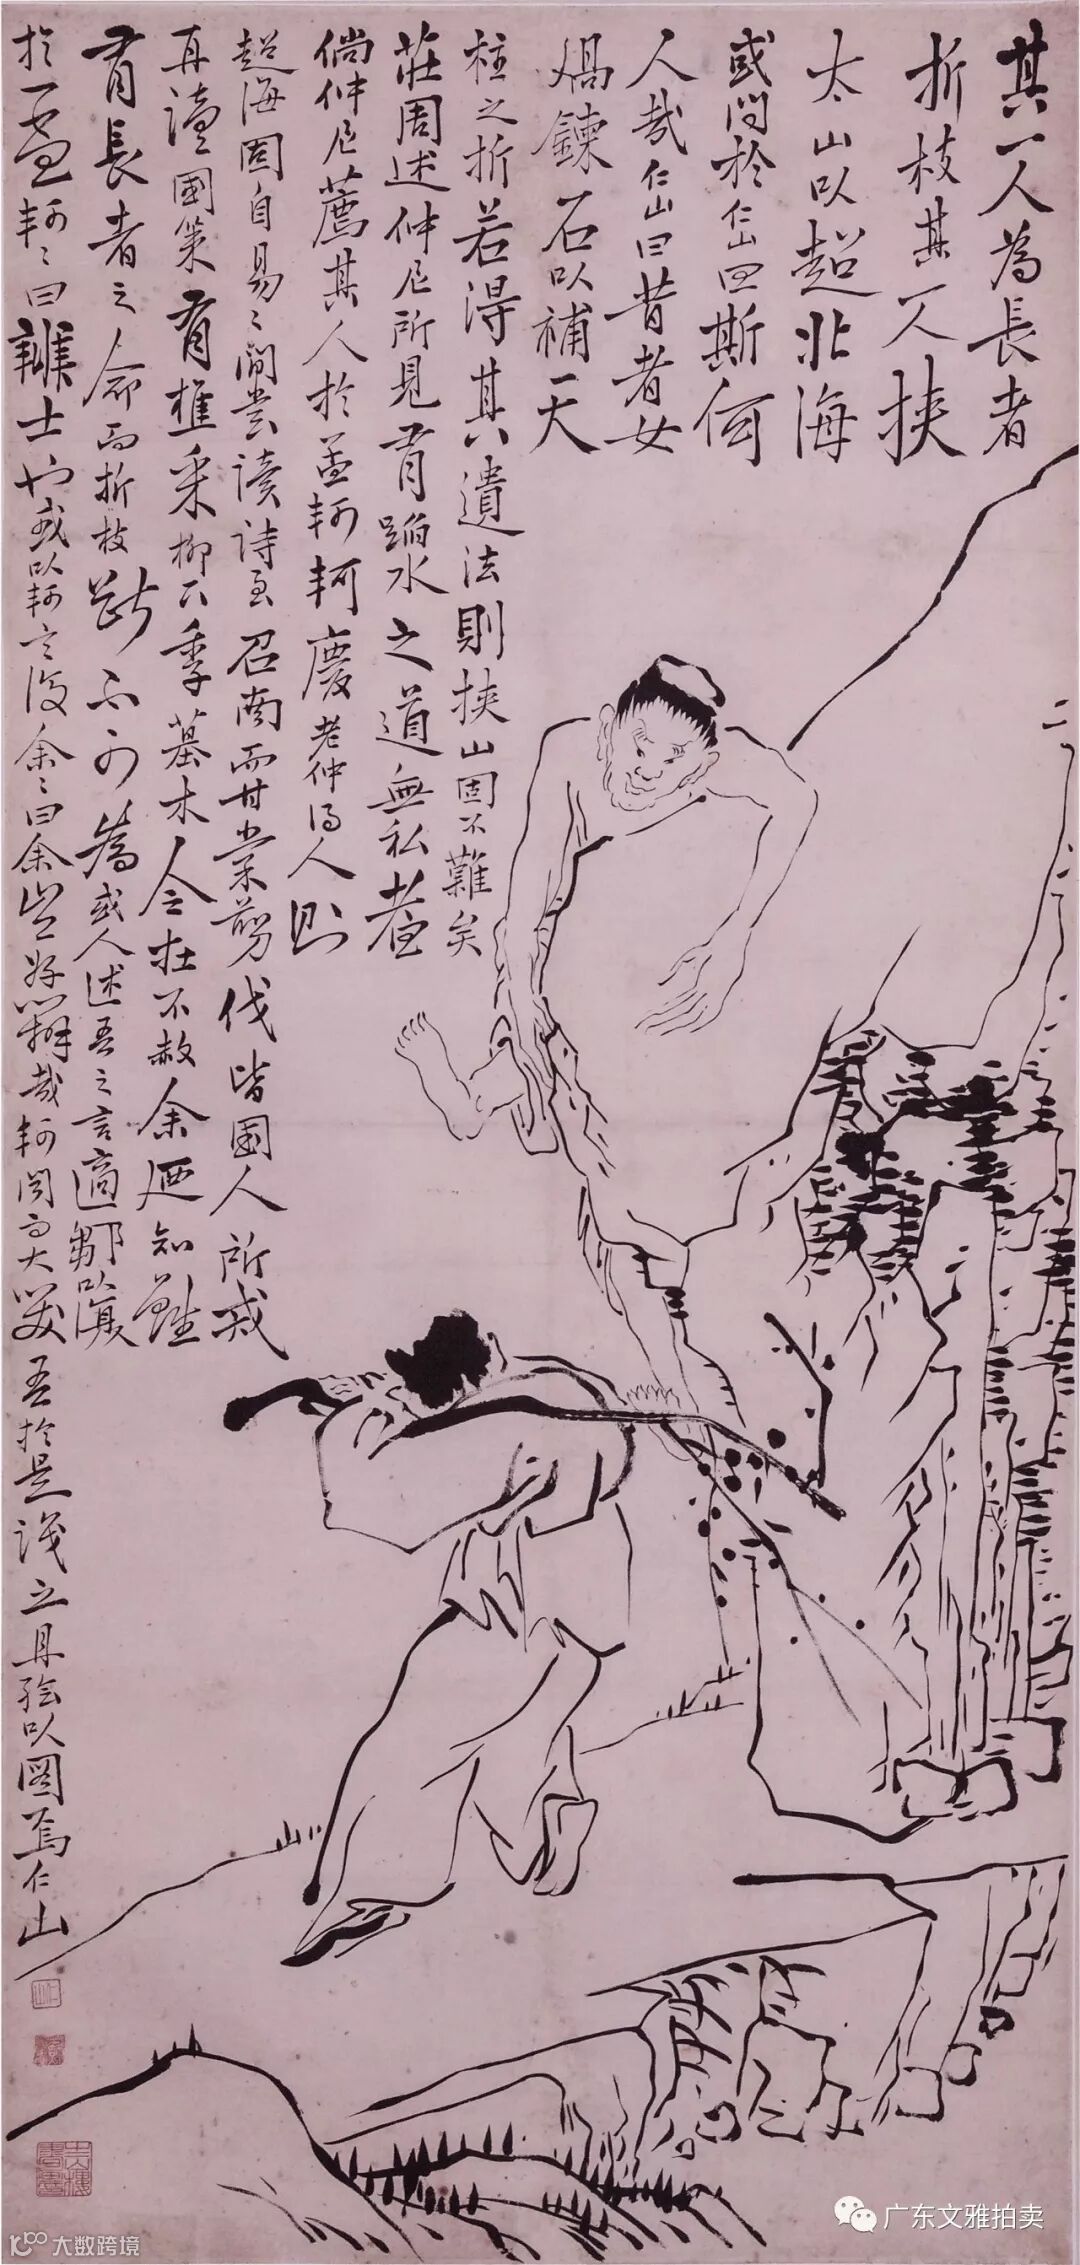 其一人為長者
折枝其一人挾
太山以超北海
或問於仁山曰斯何
人哉仁山曰昔者女
媧鍊石以補天
柱之折若得其遺法則挾山固不難矣
莊周述仲尼所見有蹈水之道無私者
倘仲尼薦其人於孟軻軻慶老仲得人則
超海固自易易間嘗讀詩至召南而甘棠翦伐皆國人所戒
再讀國策有樵采柳下季墓木令在不赦余廼知雖
有長者之命而折枝斷不可為或人述吾之言適鄒以演
於孟軻軻曰誰士也或以軻言復余余曰余豈好辯哉軻聞而大笑吾於是識之且繪以圖焉仁山
广东文雅拍卖
大数跨境